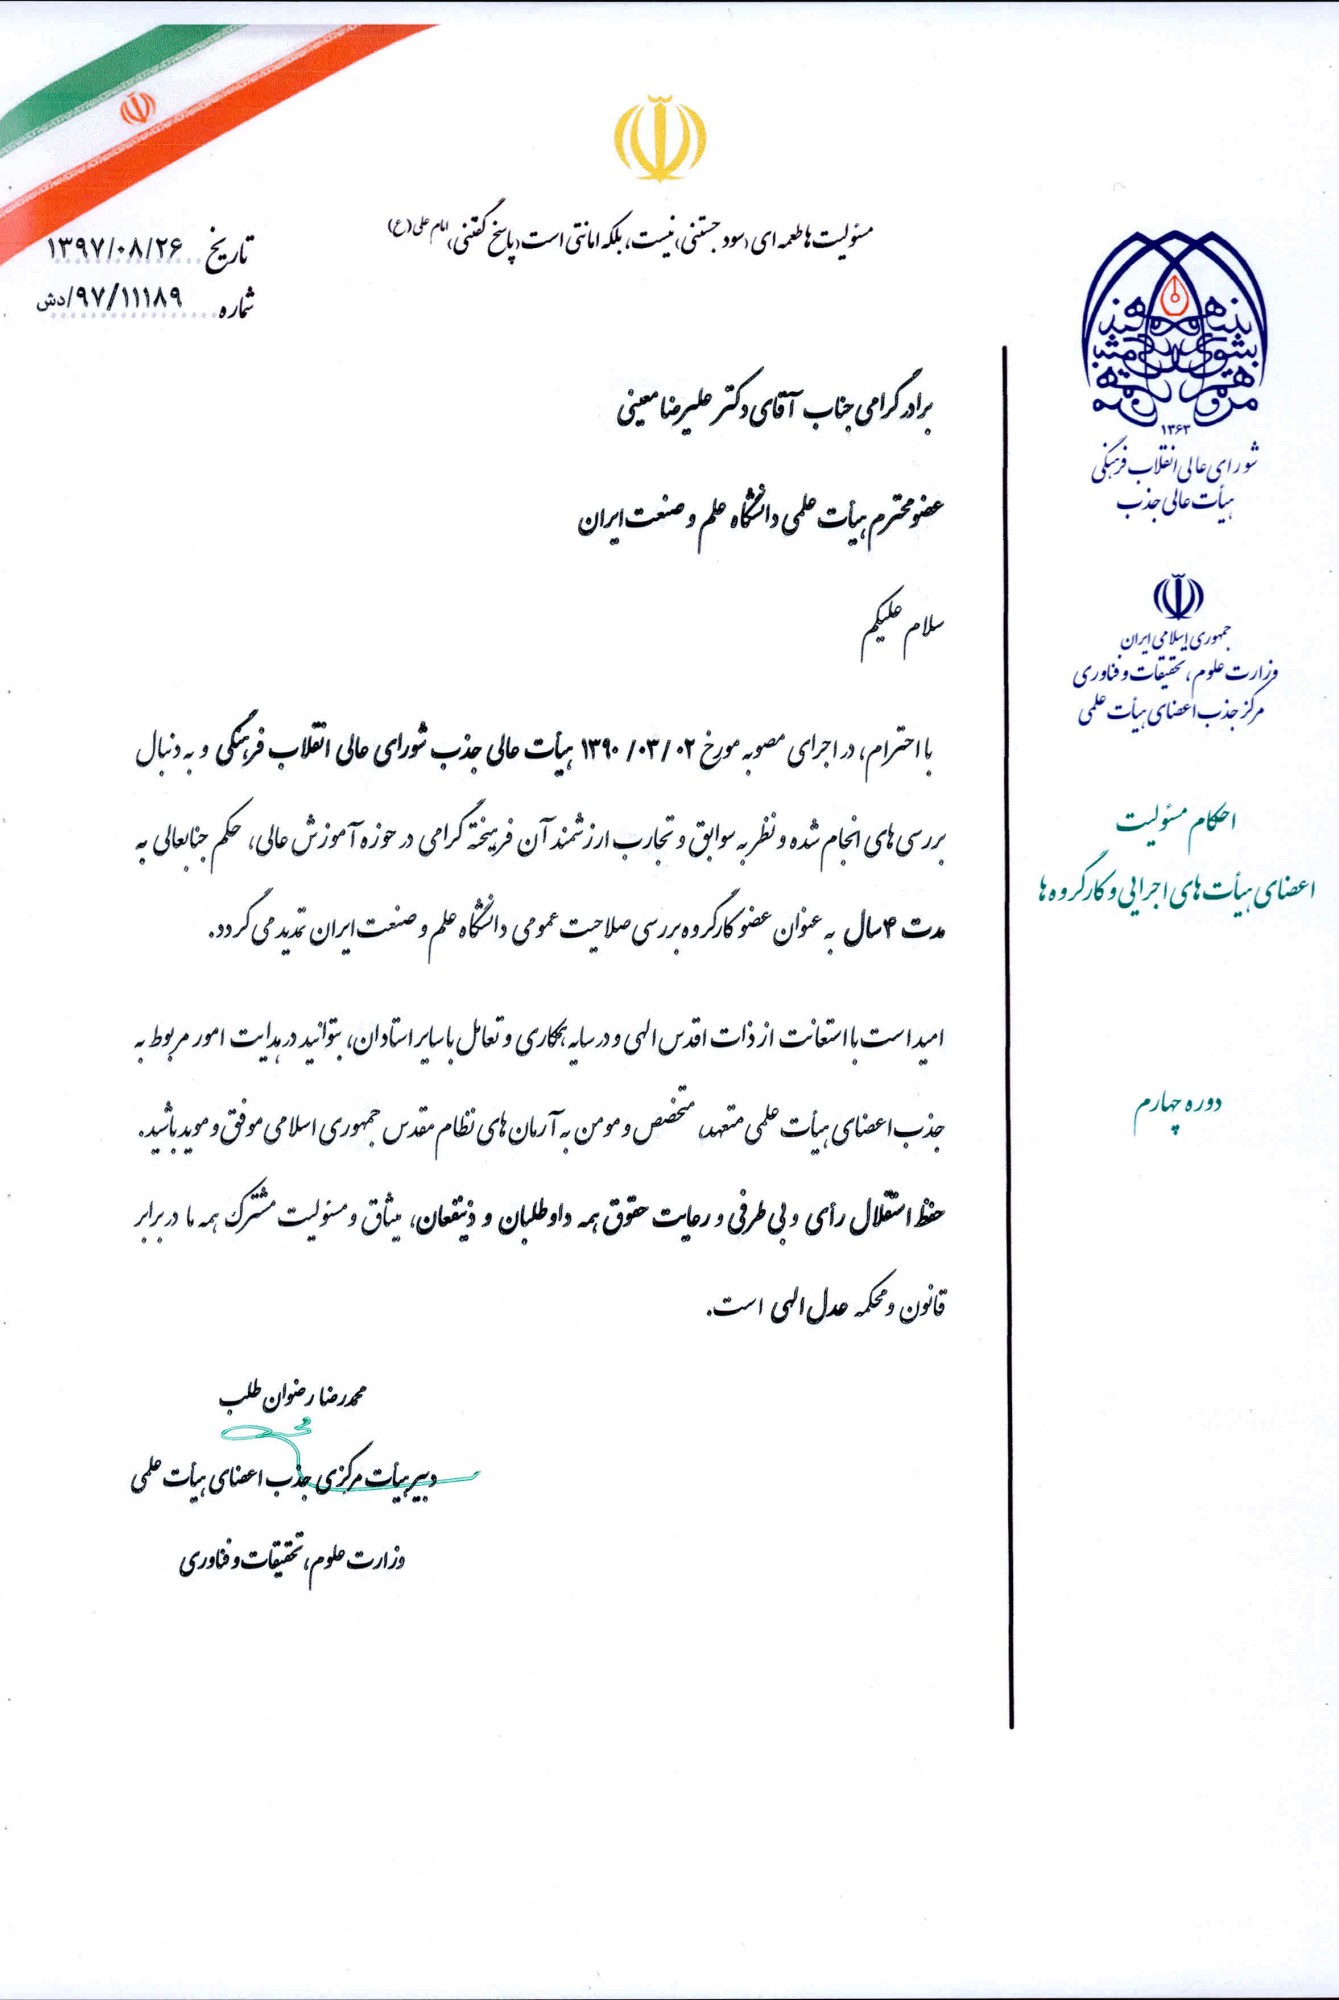 مسئولیت‌ها طعمه‌ای (سود جستنی) نیست، بلکه امانتی است (پاسخ گفتنی) امام علی (ع)
تاریخ ۱۳۹۷/۰۸/۲۶
شماره ۹۷/۱۱۱۸۹/دش
۱۳۶۳
شورای عالی انقلاب فرهنگی
هیأت عالی جذب
جمهوری اسلامی ایران
وزارت علوم، تحقیقات و فناوری
مرکز جذب اعضای هیأت علمی
احکام مسئولیت
اعضای هیأت های اجرایی و کارگروه ها
دوره چهارم
برادر گرامی جناب آقای دکتر علیرضا معینی
عضو محترم هیأت علمی دانشگاه علم و صنعت ایران
سلام علیکم
با احترام، در اجرای مصوبه مورخ ۱۳۹۰/۰۳/۰۲ هیأت عالی جذب شورای عالی انقلاب فرهنگی و به دنبال
بررسی های انجام شده و نظر به سوابق و تجارب ارزشمند آن فرهیخته گرامی در حوزه آموزش عالی، حکم جنابعالی به
مدت ۴ سال به عنوان عضو کارگروه بررسی صلاحیت عمومی دانشگاه علم و صنعت ایران تمدید می گردد.
امید است با استعانت از ذات اقدس الهی و در سایه همکاری و تعامل با سایر استادان، بتوانید در هدایت امور مربوط به
جذب اعضای هیأت علمی متعهد، متخصص و مومن به آرمان های نظام مقدس جمهوری اسلامی موفق و موید باشید.
حفظ استقلال رأی و بی طرفی و رعایت حقوق همه داوطلبان و ذینفعان، میثاق و مسئولیت مشترک همه ما در برابر
قانون و محکمه عدل الهی است.
محمدرضا رضوان طلب
دبیر هیأت مرکزی جذب اعضای هیأت علمی
وزارت علوم، تحقیقات و فناوری